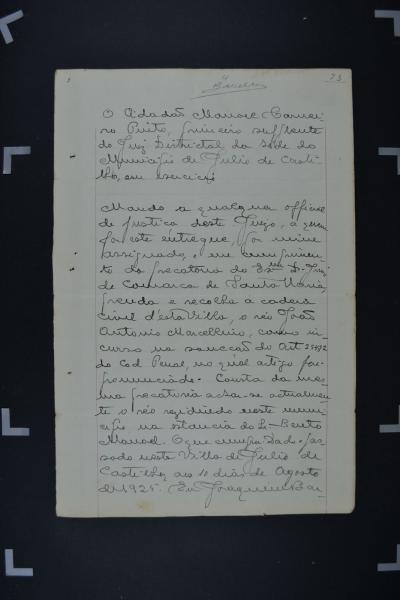 23
O Cidadão Manoel Carnei-
ro Pinto, primeiro supplente
do Juiz Districtal da Séde do
Municipio de Julio de Casti-
lho, em exercicio
Mando a qualquer official
de justiça deste Juizo, a quem
for este entregue, por mim
assignado, e em cumprimen-
to da precatoria do Exmo Dr. Juiz
de Comarca de Santa Maria,
prenda e recolha a cadeia
civil d'esta Villa, o réo João
Antonio Marcellino, como in-
curso na sancção do Art
do Cod. Penal, no qual artigo foi
pronunciado. Consta da mes-
ma precatoria achar-se actualmen-
te o réo residindo neste muni-
cipio na estancia do Bento
Manoel. O que cumpra. Dado e pas-
sado nesta Villa de Julio de
Castilho, aos 10 dias de Agosto
de 1925. Eu Joaquim